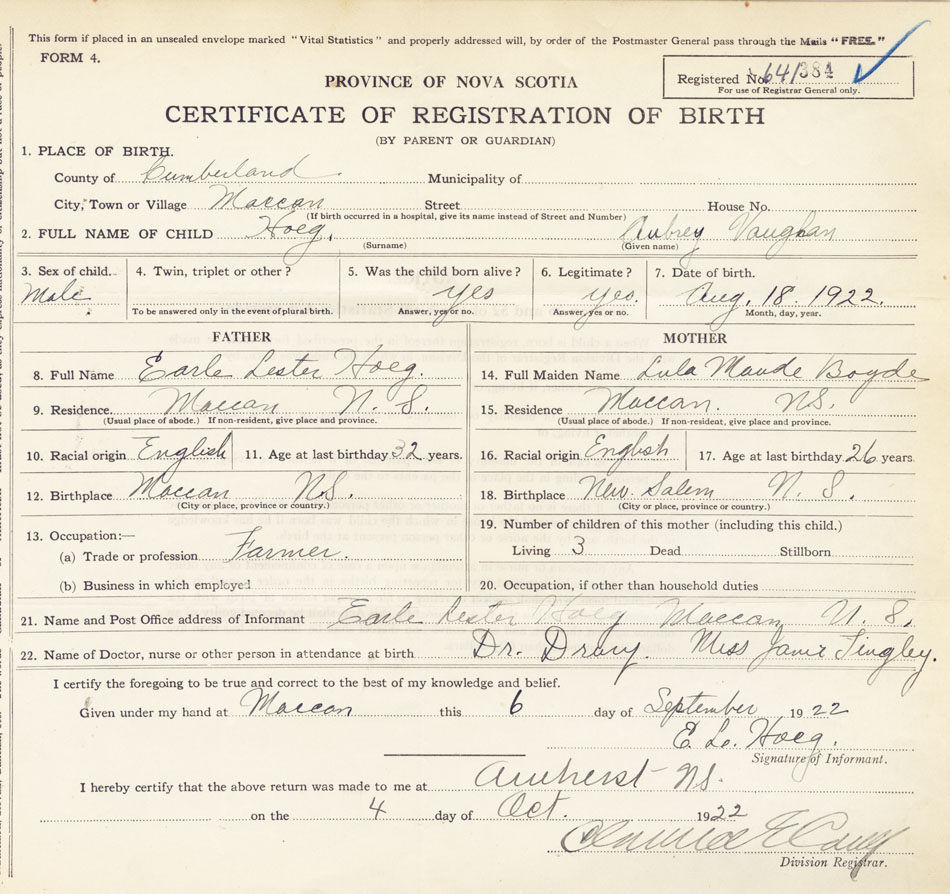 This form if placed in an unsealed envelope marked "Vital Statistics" and properly addressed will, by order of the Postmaster General pass through the Mails "FREE."
FORM 4.
Registered No. 641384
For use of Registrar General only.
PROVINCE OF NOVA SCOTIA
CERTIFICATE OF REGISTRATION OF BIRTH
(BY PARENT OR GUARDIAN)
1. PLACE OF BIRTH.
County of Cumberland Municipality of
City, Town or Village Maccan Street House No.
(If birth occurred in a hospital, give its name instead of Street and Number)
2. FULL NAME OF CHILD Hoeg, Aubrey Vaughan
(Surname) (Given name)
3. Sex of child. 4. Twin, triplet or other? 5. Was the child born alive? 6. Legitimate? 7. Date of birth.
Male yes yes. Aug. 18. 1922.
To be answered only in the event of plural birth. Answer, yes or no. Answer, yes or no. Month, day, year.
FATHER MOTHER
8. Full Name Earle Lester Hoeg. 14. Full Maiden Name Lula Maude Boyde
9. Residence. Maccan N. S. 15. Residence Maccan. N.S.
(Usual place of abode.) If non-resident, give place and province. (Usual place of abode.) If non-resident, give place and province.
10. Racial origin English 11. Age at last birthday 32 years. 16. Racial origin English 17. Age at last birthday 26 years.
12. Birthplace Maccan N.S. 18. Birthplace New Salem N. S.
(City or place, province or country.) (City or place, province or country.)
13. Occupation:— 19. Number of children of this mother (including this child.)
(a) Trade or profession Farmer. Living 3 Dead Stillborn
(b) Business in which employed 20. Occupation, if other than household duties
21. Name and Post Office address of Informant Earle Lester Hoeg Maccan N. S.
22. Name of Doctor, nurse or other person in attendance at birth Dr. Drury. Miss Janie Tingley.
I certify the foregoing to be true and correct to the best of my knowledge and belief.
Given under my hand at Maccan this 6 day of September 1922
E. L. Hoeg.
Signature of Informant.
I hereby certify that the above return was made to me at Amherst N.S.
on the 4 day of Oct. 1922
Division Registrar.